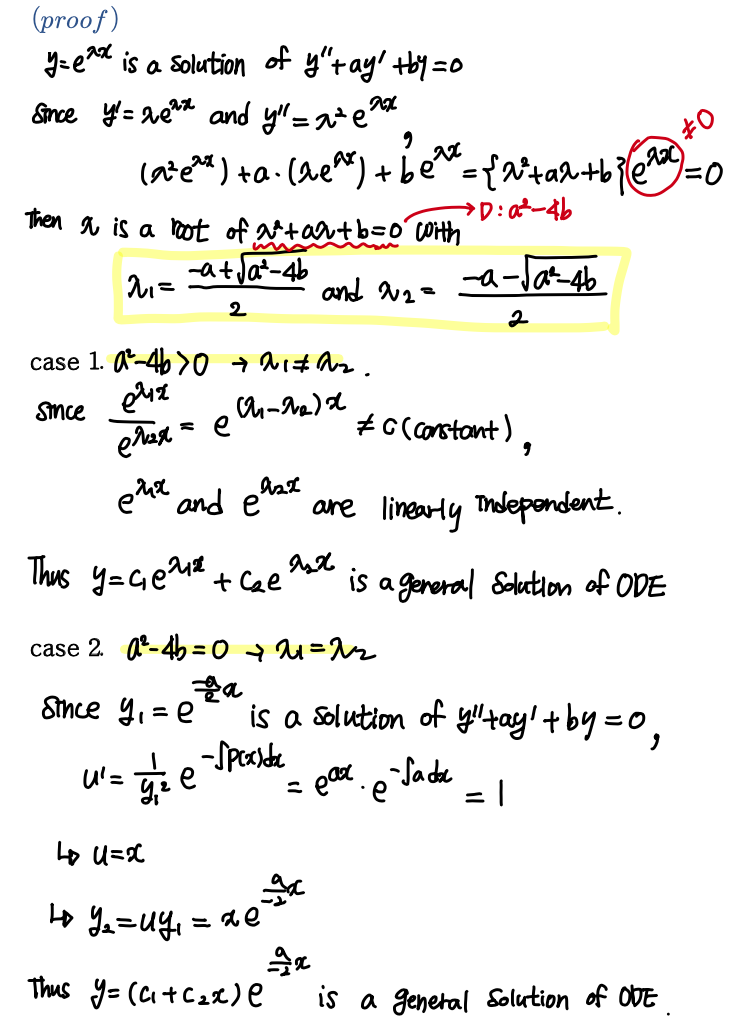 (proof)
y=e^{λx} is a solution of y''+ay'+by=0
Since y'=λe^{λx} and y''=λ²e^{λx},
(λ²e^{λx})+a·(λe^{λx})+be^{λx}={λ²+aλ+b}e^{λx}=0 ≠0
Then λ is a root of λ²+aλ+b=0 with → D: a²-4b
λ₁=\frac{-a+√(a²-4b)}{2} and λ₂=\frac{-a-√(a²-4b)}{2}
case 1. a²-4b>0 → λ₁≠λ₂.
Since \frac{e^{λ₁x}}{e^{λ₂x}}=e^{(λ₁-λ₂)x}≠c(constant),
e^{λ₁x} and e^{λ₂x} are linearly independent.
Thus y=c₁e^{λ₁x}+c₂e^{λ₂x} is a general solution of ODE
case 2. a²-4b=0 → λ₁=λ₂
Since y₁=e^{\frac{-a}{2}x} is a solution of y''+ay'+by=0,
u'=\frac{1}{y₁²}e^{-∫p(x)dx}=e^{ax}·e^{-∫a dx}=1
↳ u=x
↳ y₂=uy₁=xe^{\frac{a}{-2}x}
Thus y=(c₁+c₂x)e^{\frac{a}{-2}x} is a general solution of ODE.